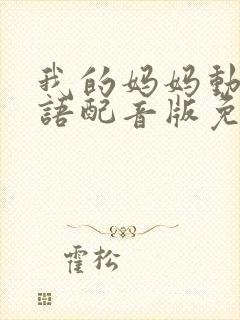 我的妈妈動
語配音版免
霍松